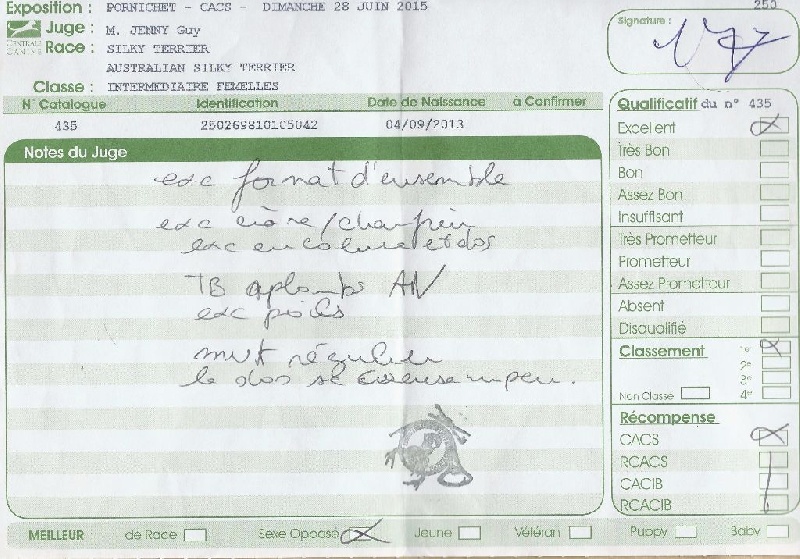 Exposition : PORNICHET - CACS - DIMANCHE 28 JUIN 2015
Juge : M. JENNY Guy
CENTRALE CANINE
Race : SILKY TERRIER
AUSTRALIAN SILKY TERRIER
Classe : INTERMEDIAIRE FEMELLES
250
Signature :
N° Catalogue Identification Date de Naissance à Confirmer
435 250269810105042 04/09/2013
Notes du Juge
exc format d'ensemble
exc crâne/chanfrein
exc encolure et dos
TB aplombs AV
exc poils
mvt régulier
le dos se creuse un peu.
Qualificatif du n° 435
Excellent
Très Bon
Bon
Assez Bon
Insuffisant
Très Prometteur
Prometteur
Assez Prometteur
Absent
Disqualifié
Classement 1er
2e
3e
Non Classé 4e
Récompense
CACS
RCACS
CACIB
RCACIB
MEILLEUR de Race Sexe Opposé Jeune Vétéran Puppy Baby